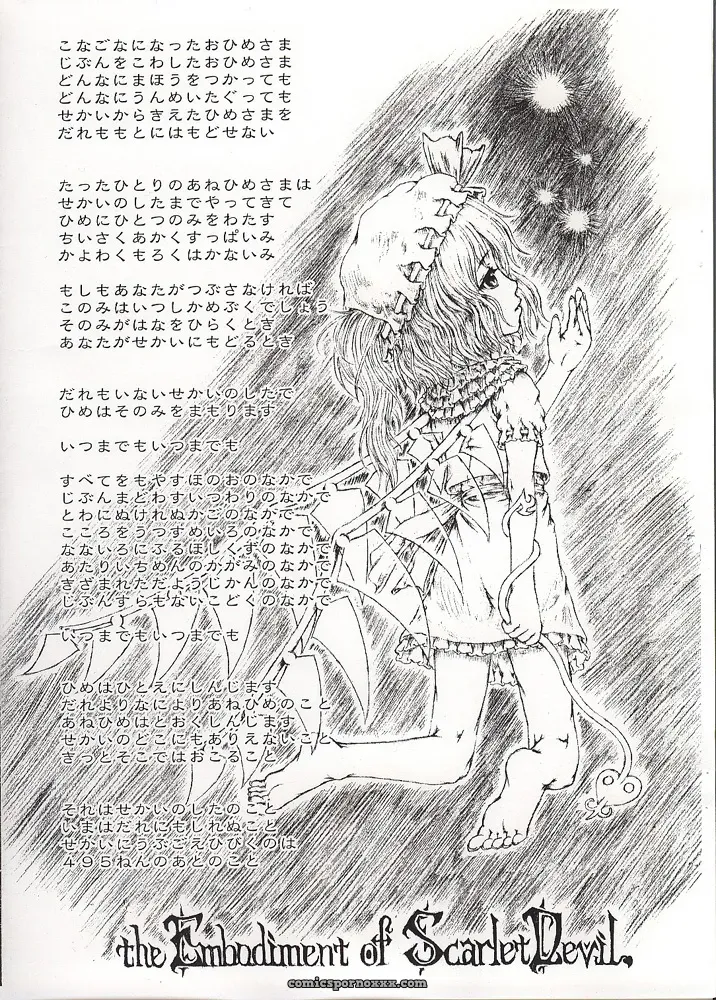 こなごなになったおひめさま
じぶんをこわしたおひめさま
どんなにまほうをつかっても
どんなにうんめいたぐっても
せかいからきえたひめさまを
だれももとにはもどせない
たったひとりのあねひめさまは
せかいのしたまでやってきて
ひめにひとつのみをわたす
ちいさくあかくすっぱいみ
かよわくもろくはかないみ
もしもあなたがつぶさなければ
このみはいつしかめぶくでしょう
そのみがはなをひらくとき
あなたがせかいにもどるとき
だれもいないせかいのしたで
ひめはそのみをまもります
いつまでもいつまでも
すべてをもやすほのおのなかで
じぶんまどわすいつわりのなかで
とわにぬけれぬかごのなかで
こころをうつすめいろのなかで
なないろにふるほしくずのなかで
あたりいちめんのかがみのなかで
きざまれただようじかんのなかで
じぶんすらもないこどくのなかで
いつまでもいつまでも
ひめはひとえにしんじます
だれよりなによりあねひめのこと
あねひめはとおくしんじます
せかいのどこにもありえないこと
きっとそこではおこること
それはせかいのしたのこと
いまはだれにもしれぬこと
せかいにうぶごえひびくのは
495ねんのあとのこと
the Embodiment of Scarlet Devil.
comicspornoxxx.com